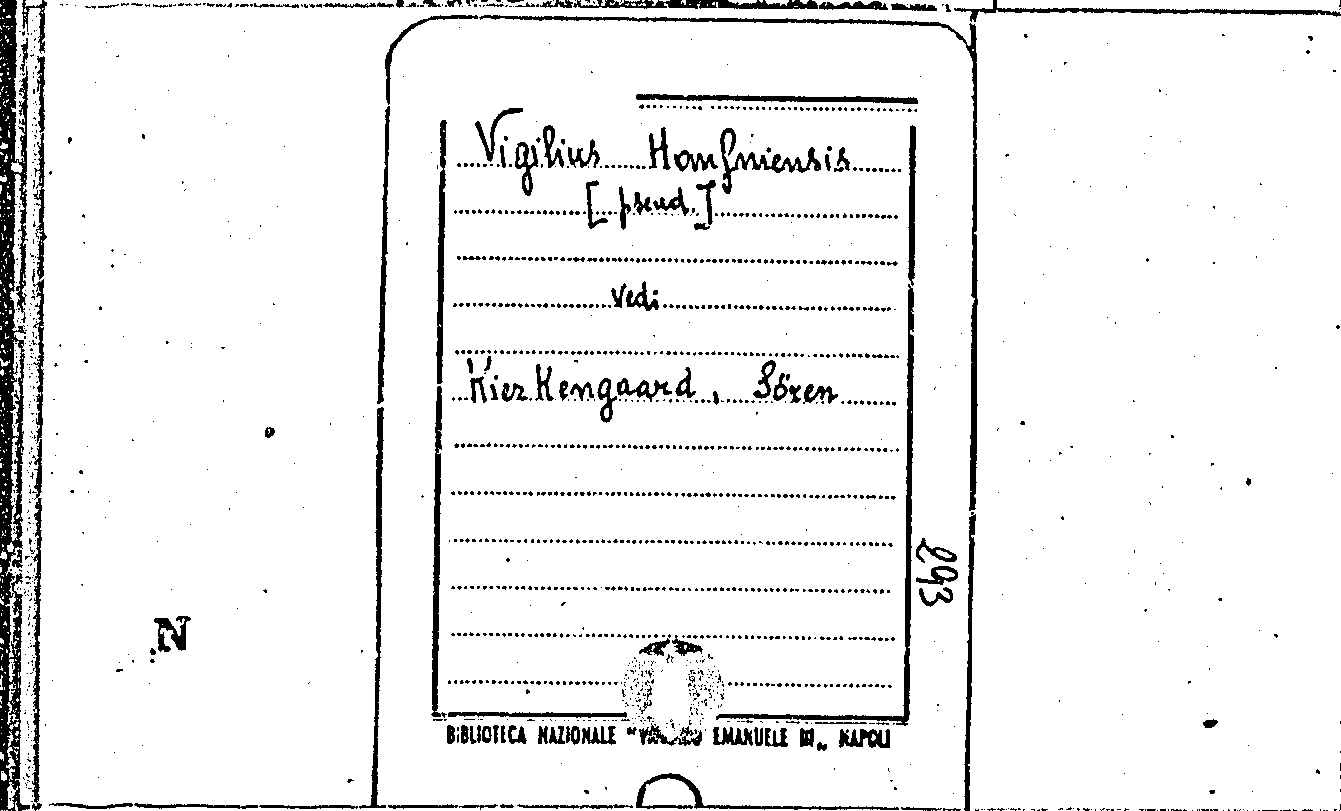 Vigilius Homfniensis
[pseud.]
Vedi
KierKengaard, Sören
293
N
BIBLIOTECA NAZIONALE " EMANUELE III„ NAPOLI